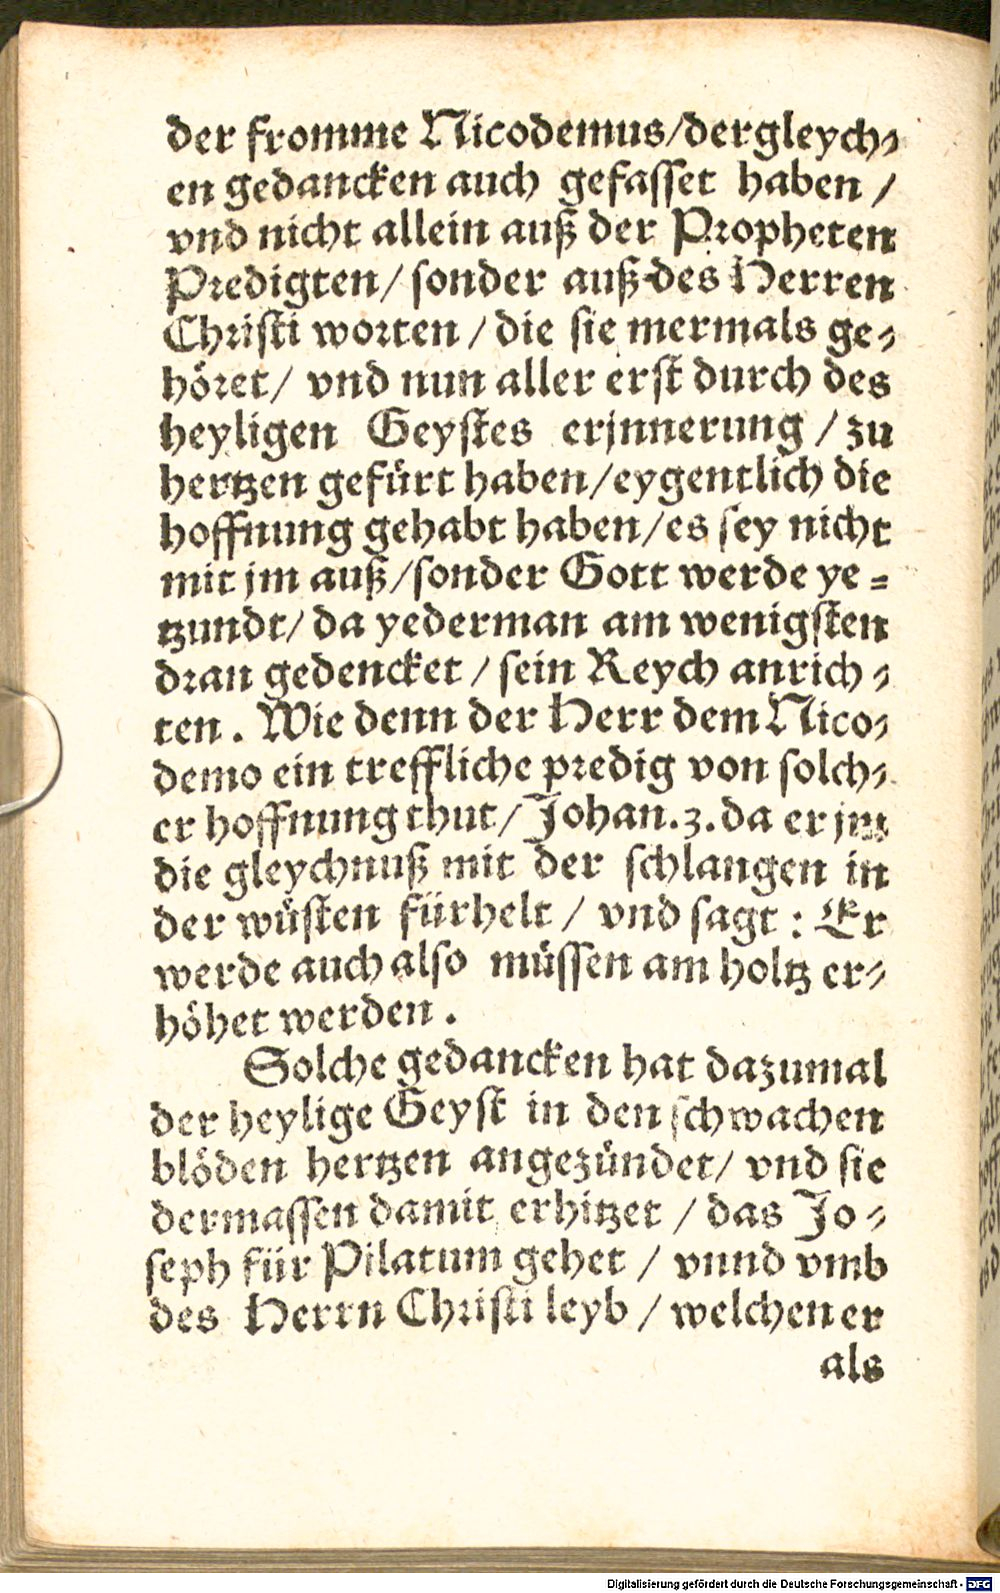 der fromme Nicodemus/dergleych-
en gedancken auch gefasset haben /
vnd nicht allein auß der Propheten
Predigten/ sonder auß des Herren
Christi worten / die sie mermals ge-
höret/ vnd nun aller erst durch des
heyligen Geystes erjnnerung / zu
hertzen gefürt haben/eygentlich die
hoffnung gehabt haben/es sey nicht
mit jm auß/sonder Gott werde ye-
tzundt/ da yederman am wenigsten
dran gedencket / sein Reych anrich-
ten. Wie denn der Herr dem Nico-
demo ein treffliche predig von solch-
er hoffnung thut/ Johan.3. da er jm
die gleychnuß mit der schlangen in
der wüsten fürhelt / vnd sagt: Er
werde auch also müssen am holtz er-
höhet werden.
Solche gedancken hat dazumal
der heylige Geyst in den schwachen
blöden hertzen angezündet/ vnd sie
dermassen damit erhitzet / das Jo-
seph für Pilatum gehet / vnnd vmb
des Herrn Christi leyb / welchen er
als
Digitalisierung gefördert durch die Deutsche Forschungsgemeinschaft - DFG